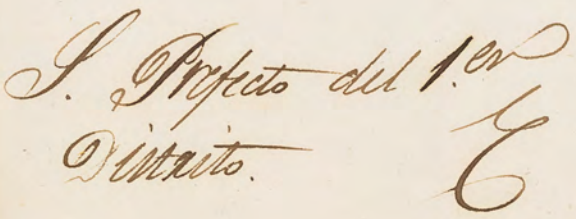 S. Prefecto del 1.er
Distrito.